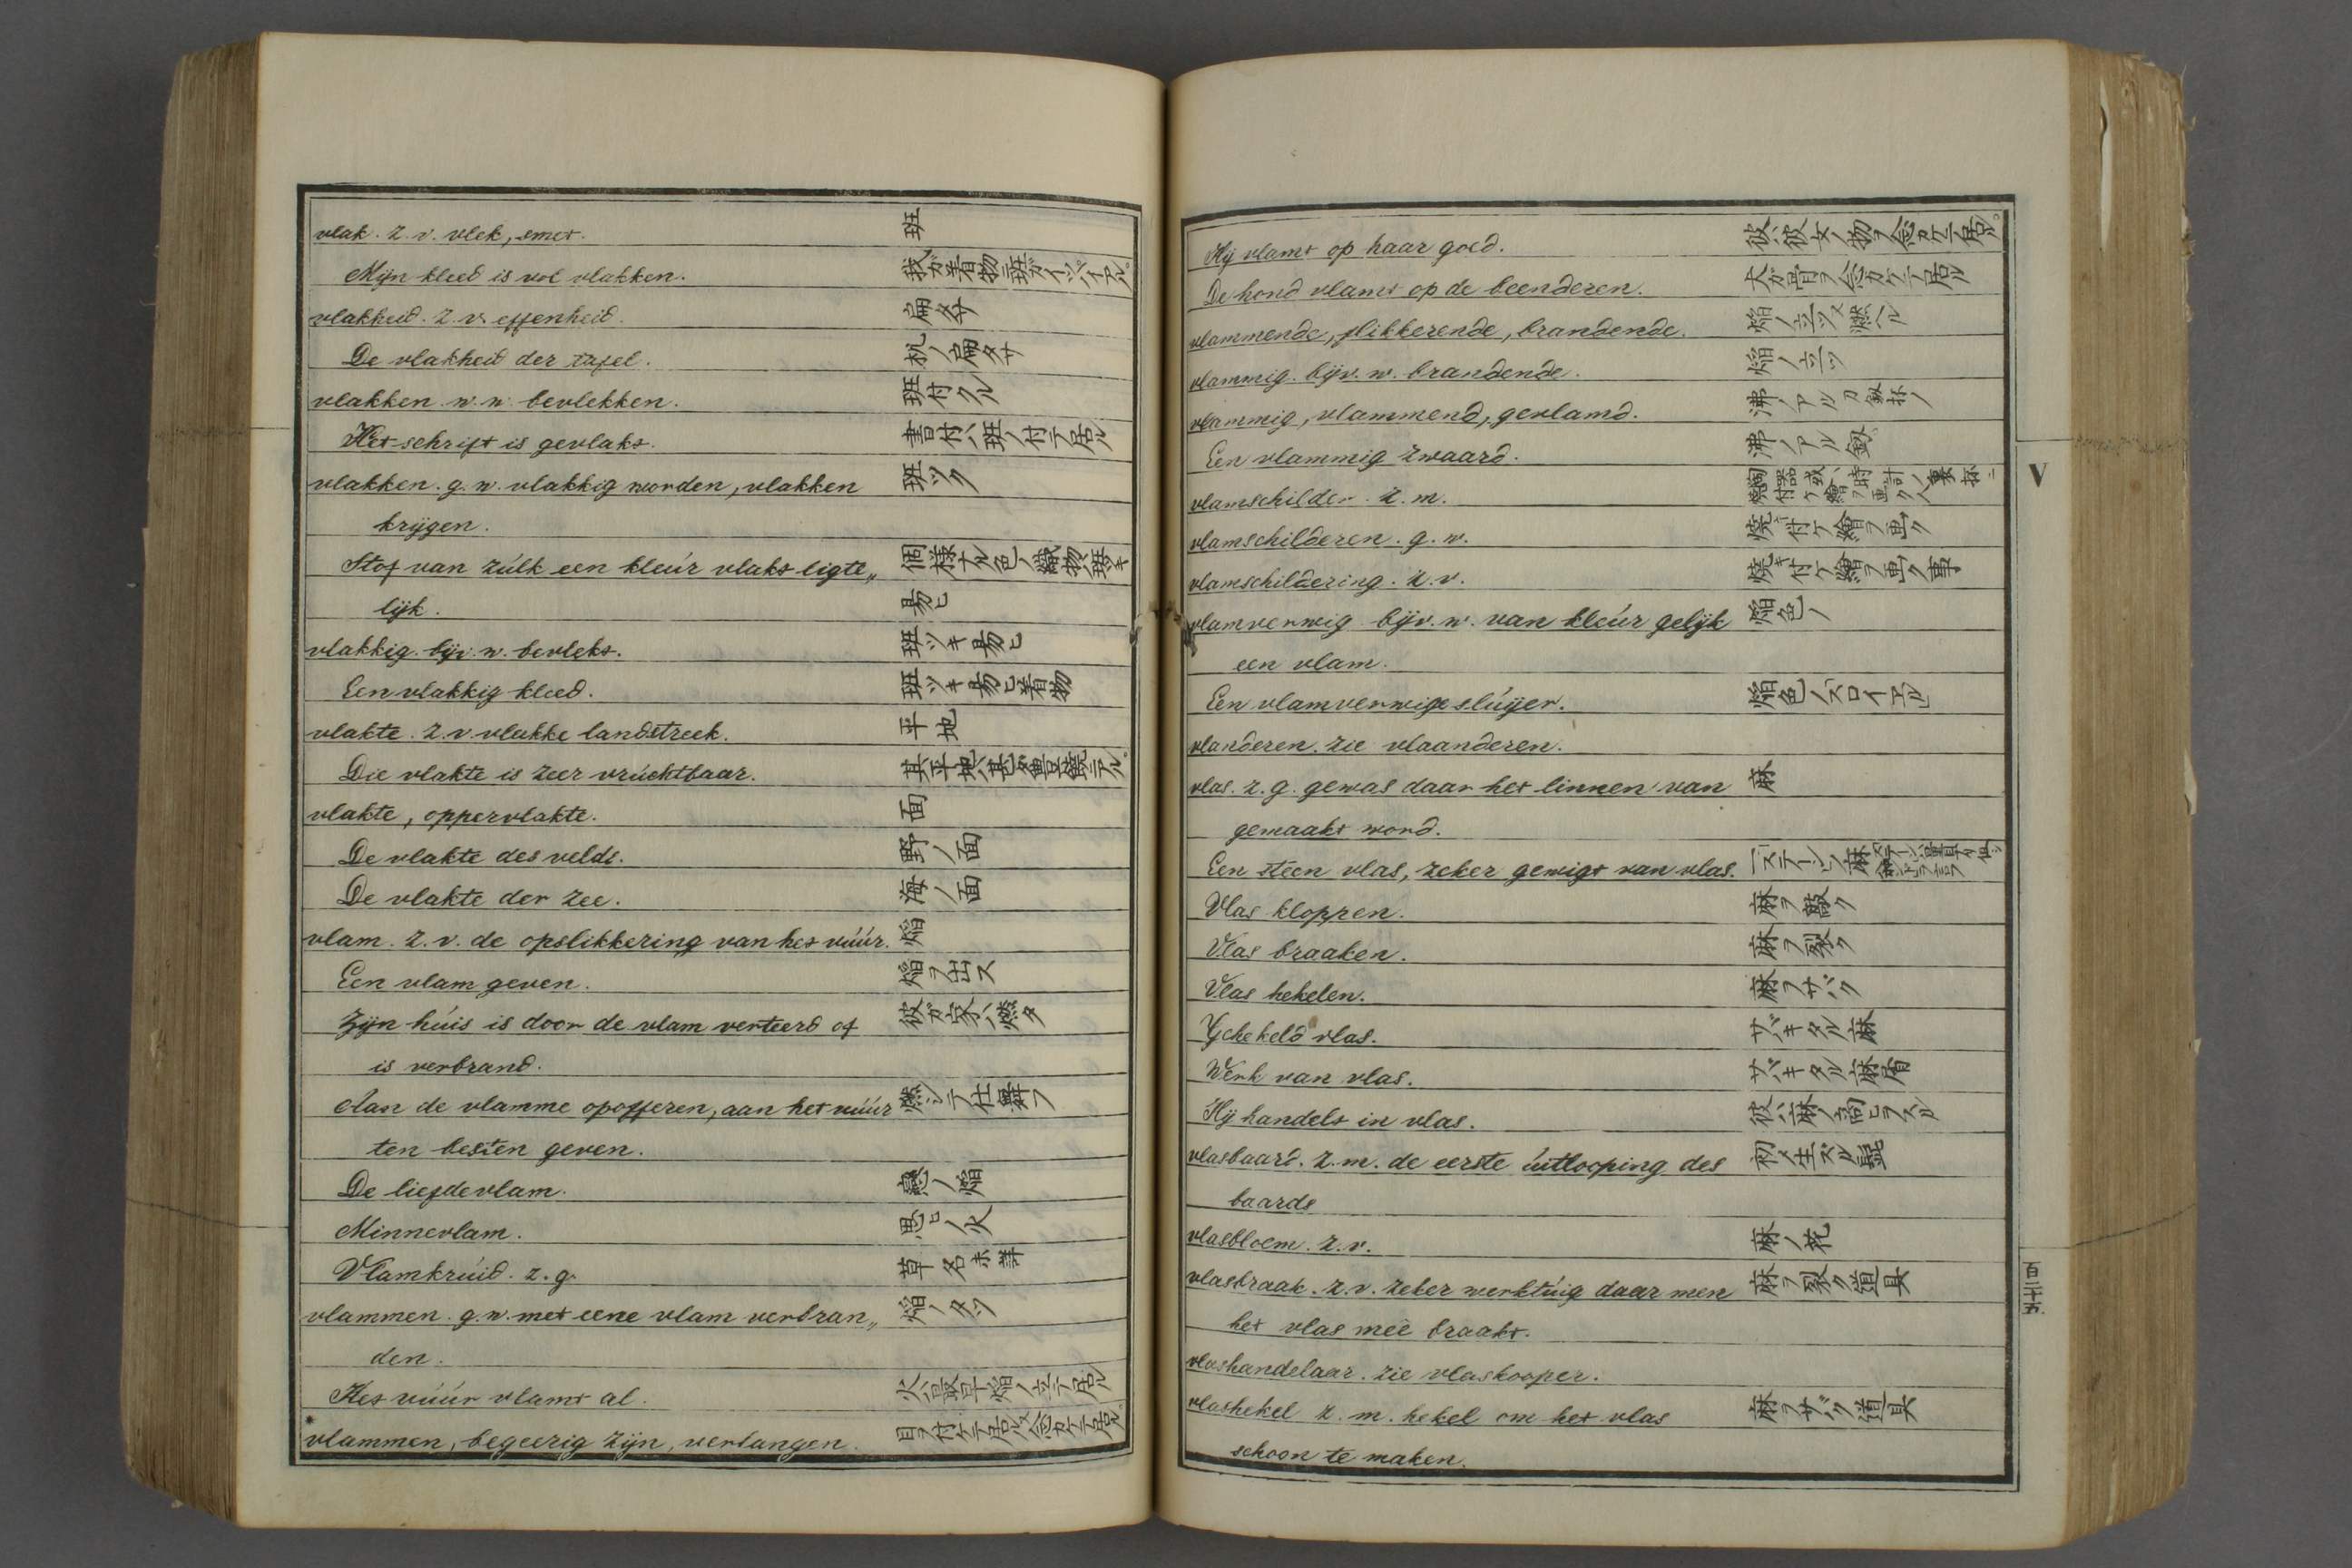 vlak. z. v. vlek, smet. 斑
Mijn kleed is vol vlakken. 我ガ着物ニ斑ガイツパイアル。
vlakheid. z. v. effenheid. 扁サ
De vlakheid der tafel. 机ノ扁タサ
vlakken. w. w. bevlekken. 斑付クル
Het schrift is gevlakt. 書付ハ斑ノ付テ居ル
vlakken. g. w. vlakkig worden, vlakken 斑ツク
krijgen.
Stof van zúlk een kleúr vlakt ligte„ 個様ナル色ノ織物ハ斑キ
lijk. 易ヒ
vlakkig. bijv. w. bevlekt. 斑ツキ易ヒ
Een vlakkig kleed. 斑ツキ易ヒ着物
vlakte. z. v. vlakke landstreek. 平地
Die vlakte is zeer vrúchtbaar. 其平地ハ甚タ豊饒テアル。
vlakte, oppervlakte. 面
De vlakte des velds. 野ノ面
De vlakte der zee. 海ノ面
vlam. z. v. de opslikkering van het vúúr. 焔
Een vlam geven. 焔ヲ出ス
Zijn húis is door de vlam verteerd of 彼ガ家ハ燃タ
is verbrand.
Aan de vlamme opofferen, aan het vúúr 燃シテ仕舞フ
ten besten geven.
De liefdevlam. 戀ノ焔
Minnevlam. 思ヒノ火
Vlamkrúid. z. g. 草名未詳
vlammen. g. w. met eene vlam verbran„ 焔ノタツ
den.
Het vúúr vlamt al. 火ハ最早焔ノ立テ居ル
* vlammen, begeerig zijn, verlangen. 目ヲ付ケテ居ル念ガケテ居ル。
Hij vlamt op haar goed. 彼ハ彼女ノ物ヲ念ガケテ居ル。
De hond vlamt op de beenderen. 犬ガ骨ヲ念ガケテ居ル
vlammende, flikkerende, brandende. 焔ノ立ツ又燃ヘル
vlammig. bijv. w. brandende. 焔ノ立ツ
vlammig, vlammend, gevlamd. 沸ノアル刀劔抔ノ
Een vlammig zwaard. 沸ノアル劔
vlamschilder. z. m. 陶器或ハ時計ノ裏抔ニ
焼付ケ繪ヲ画ク人
vlamschilderen. g. w. 焼キ付ケ繪ヲ画ク
vlamschildering. z. v. 焼キ付ケ繪ヲ画ク事
vlamverwig. bijv. w. van kleúr gelijk 焔色ノ
een vlam.
Een vlamverwige slúijer. 焔色ノ「スロイエル」
vlanderen. zie vlaanderen.
vlas. z. g. gewas daar het linnen van 麻
gemaakt word.
Een steen vlas, zeker gewigt van vlas. 一「ステーン」ノ麻
Vlas kloppen. 麻ヲ敲ク
Vlas braaken. 麻ヲ裂ク
Vlas hekelen. 麻ヲサバク
Gehekeld vlas. サバキタル麻
Werk van vlas. サバキタル麻屑
Hij handelt in vlas. 彼ハ麻ノ商ヒヲスル
vlasbaard. z. m. de eerste úitlooping des 初メ生ズル髭
baards
vlasbloem. z. v. 麻ノ花
vlasbraak. z. v. zeker werktúig daar men 麻ヲ裂ク道具
het vlas meê braakt.
vlashandelaar. zie vlaskooper.
vlashekel z. m. hekel om het vlas 麻ヲサバク道具
schoon te maken.
V
百二十五